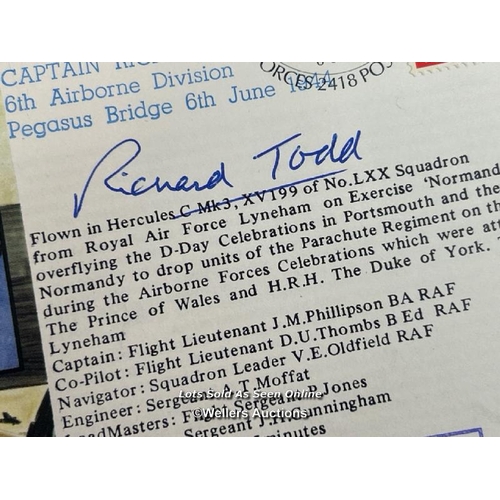 CAPTAIN
6th Airborne Division
Pegasus Bridge 6th June 1944
ORCES 2418 PO
Richard Todd
Flown in Hercules C Mk3, XV199 of No.LXX Squadron
from Royal Air Force Lyneham on Exercise 'Normand
overflying the D-Day Celebrations in Portsmouth and the
Normandy to drop units of the Parachute Regiment on th
during the Airborne Forces Celebrations which were att
The Prince of Wales and H.R.H. The Duke of York.
Lyneham
Captain: Flight Lieutenant J.M.Phillipson BA RAF
Co-Pilot: Flight Lieutenant D.U.Thombs B Ed RAF
Navigator: Squadron Leader V.E.Oldfield RAF
Engineer: Sergeant A.T.Moffat
LoadMasters: Flight Sergeant P Jones
Lots Sold As Seen Online
©Wellers Auctions
Sergeant J.H.Cunningham
minutes